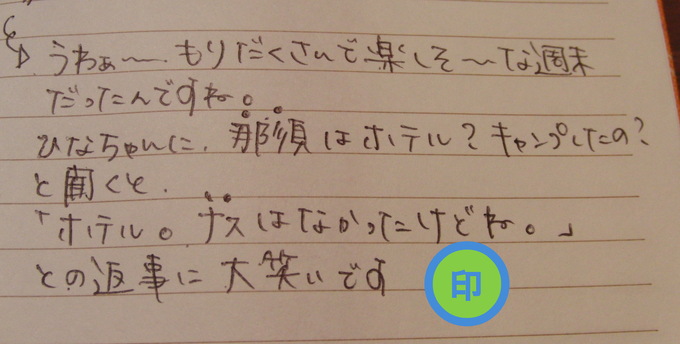 うわぁ〜。もりだくさんで楽しそ〜な週末
だったんですね。
ひなちゃんに、那須はホテル？キャンプしたの？
と聞くと、
「ホテル。ナスはなかったけどね。」
との返事に大笑いです
印